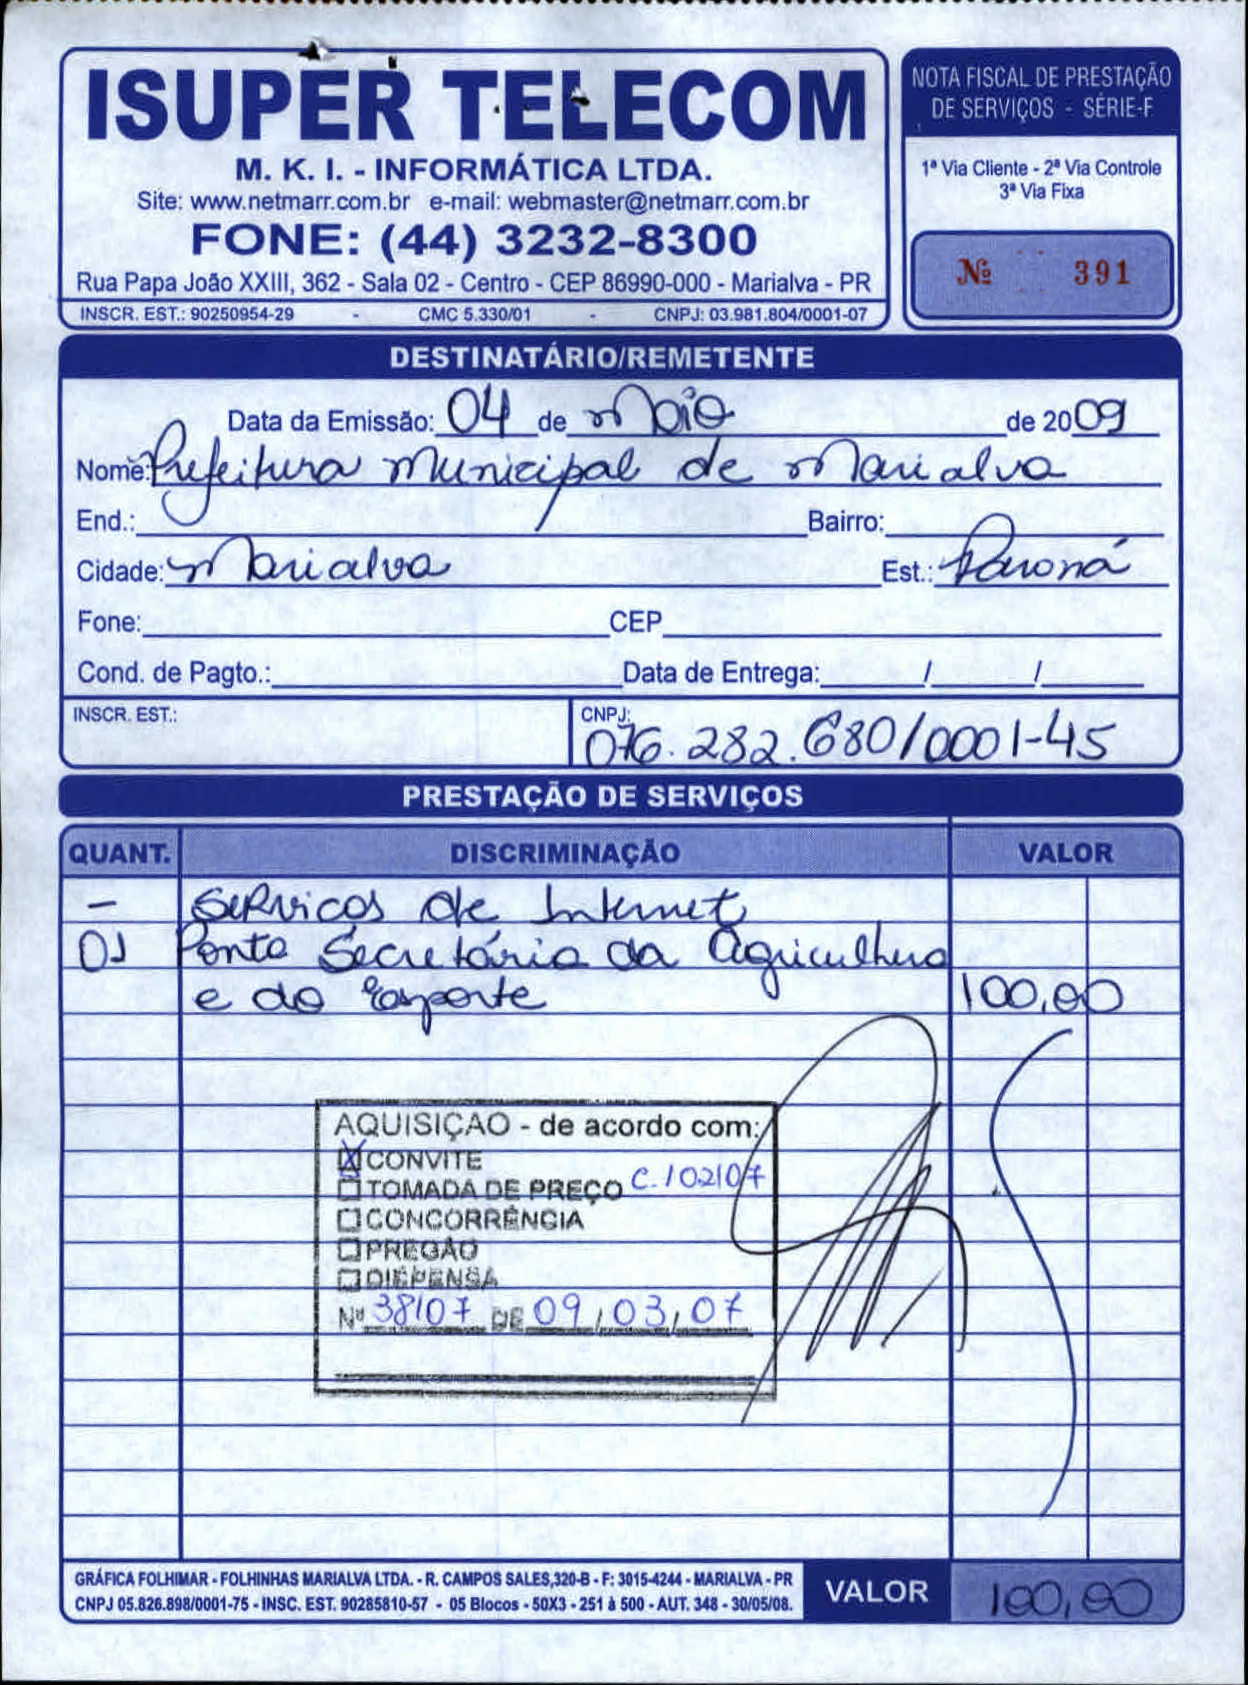 ISUPER TELECOM
M. K. I. - INFORMÁTICA LTDA.
Site: www.netmarr.com.br e-mail: webmaster@netmarr.com.br
FONE: (44) 3232-8300
Rua Papa João XXIII, 362 - Sala 02 - Centro - CEP 86990-000 - Marialva - PR
INSCR. EST.: 90250954-29 - CMC 5.330/01 - CNPJ: 03.981.804/0001-07
NOTA FISCAL DE PRESTAÇÃO
DE SERVIÇOS - SÉRIE-F
1ª Via Cliente - 2ª Via Controle
3ª Via Fixa
Nº 391
DESTINATÁRIO/REMETENTE
Data da Emissão: 04 de Maio de 2009
Nome: Prefeitura Municipal de Marialva
End.: Bairro:
Cidade: Marialva Est.: Paraná
Fone: CEP
Cond. de Pagto.: Data de Entrega: / /
INSCR. EST.: CNPJ: 076.282.680/0001-45
PRESTAÇÃO DE SERVIÇOS
QUANT. DISCRIMINAÇÃO VALOR
- Serviços de Internet
01 Ponto Secretária da Agricultura
e do Esporte 100,00
AQUISIÇÃO - de acordo com:
X CONVITE
TOMADA DE PREÇO C. 102107
CONCORRÊNCIA
PREGÃO
DISPENSA
Nº 38107 DE 09/03/07
GRÁFICA FOLHIMAR - FOLHINHAS MARIALVA LTDA. - R. CAMPOS SALES,320-B - F: 3015-4244 - MARIALVA - PR
CNPJ 05.826.898/0001-75 - INSC. EST. 90285810-57 - 05 Blocos - 50X3 - 251 à 500 - AUT. 348 - 30/05/08.
VALOR 100,00